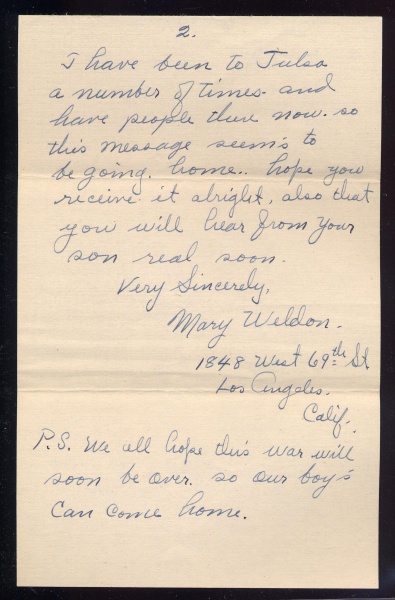 2.
I have been to Tulsa
a number of times. and
have people there now. so
this message seem's to
be going. home.. hope you
receive it alright, also that
you will hear from your
son real soon.
Very Sincerely,
Mary Weldon.
1848 West 69th St
Los Angeles.
Calif.
P.S. We all hope this war will
soon be over. so our boy's
can come home.